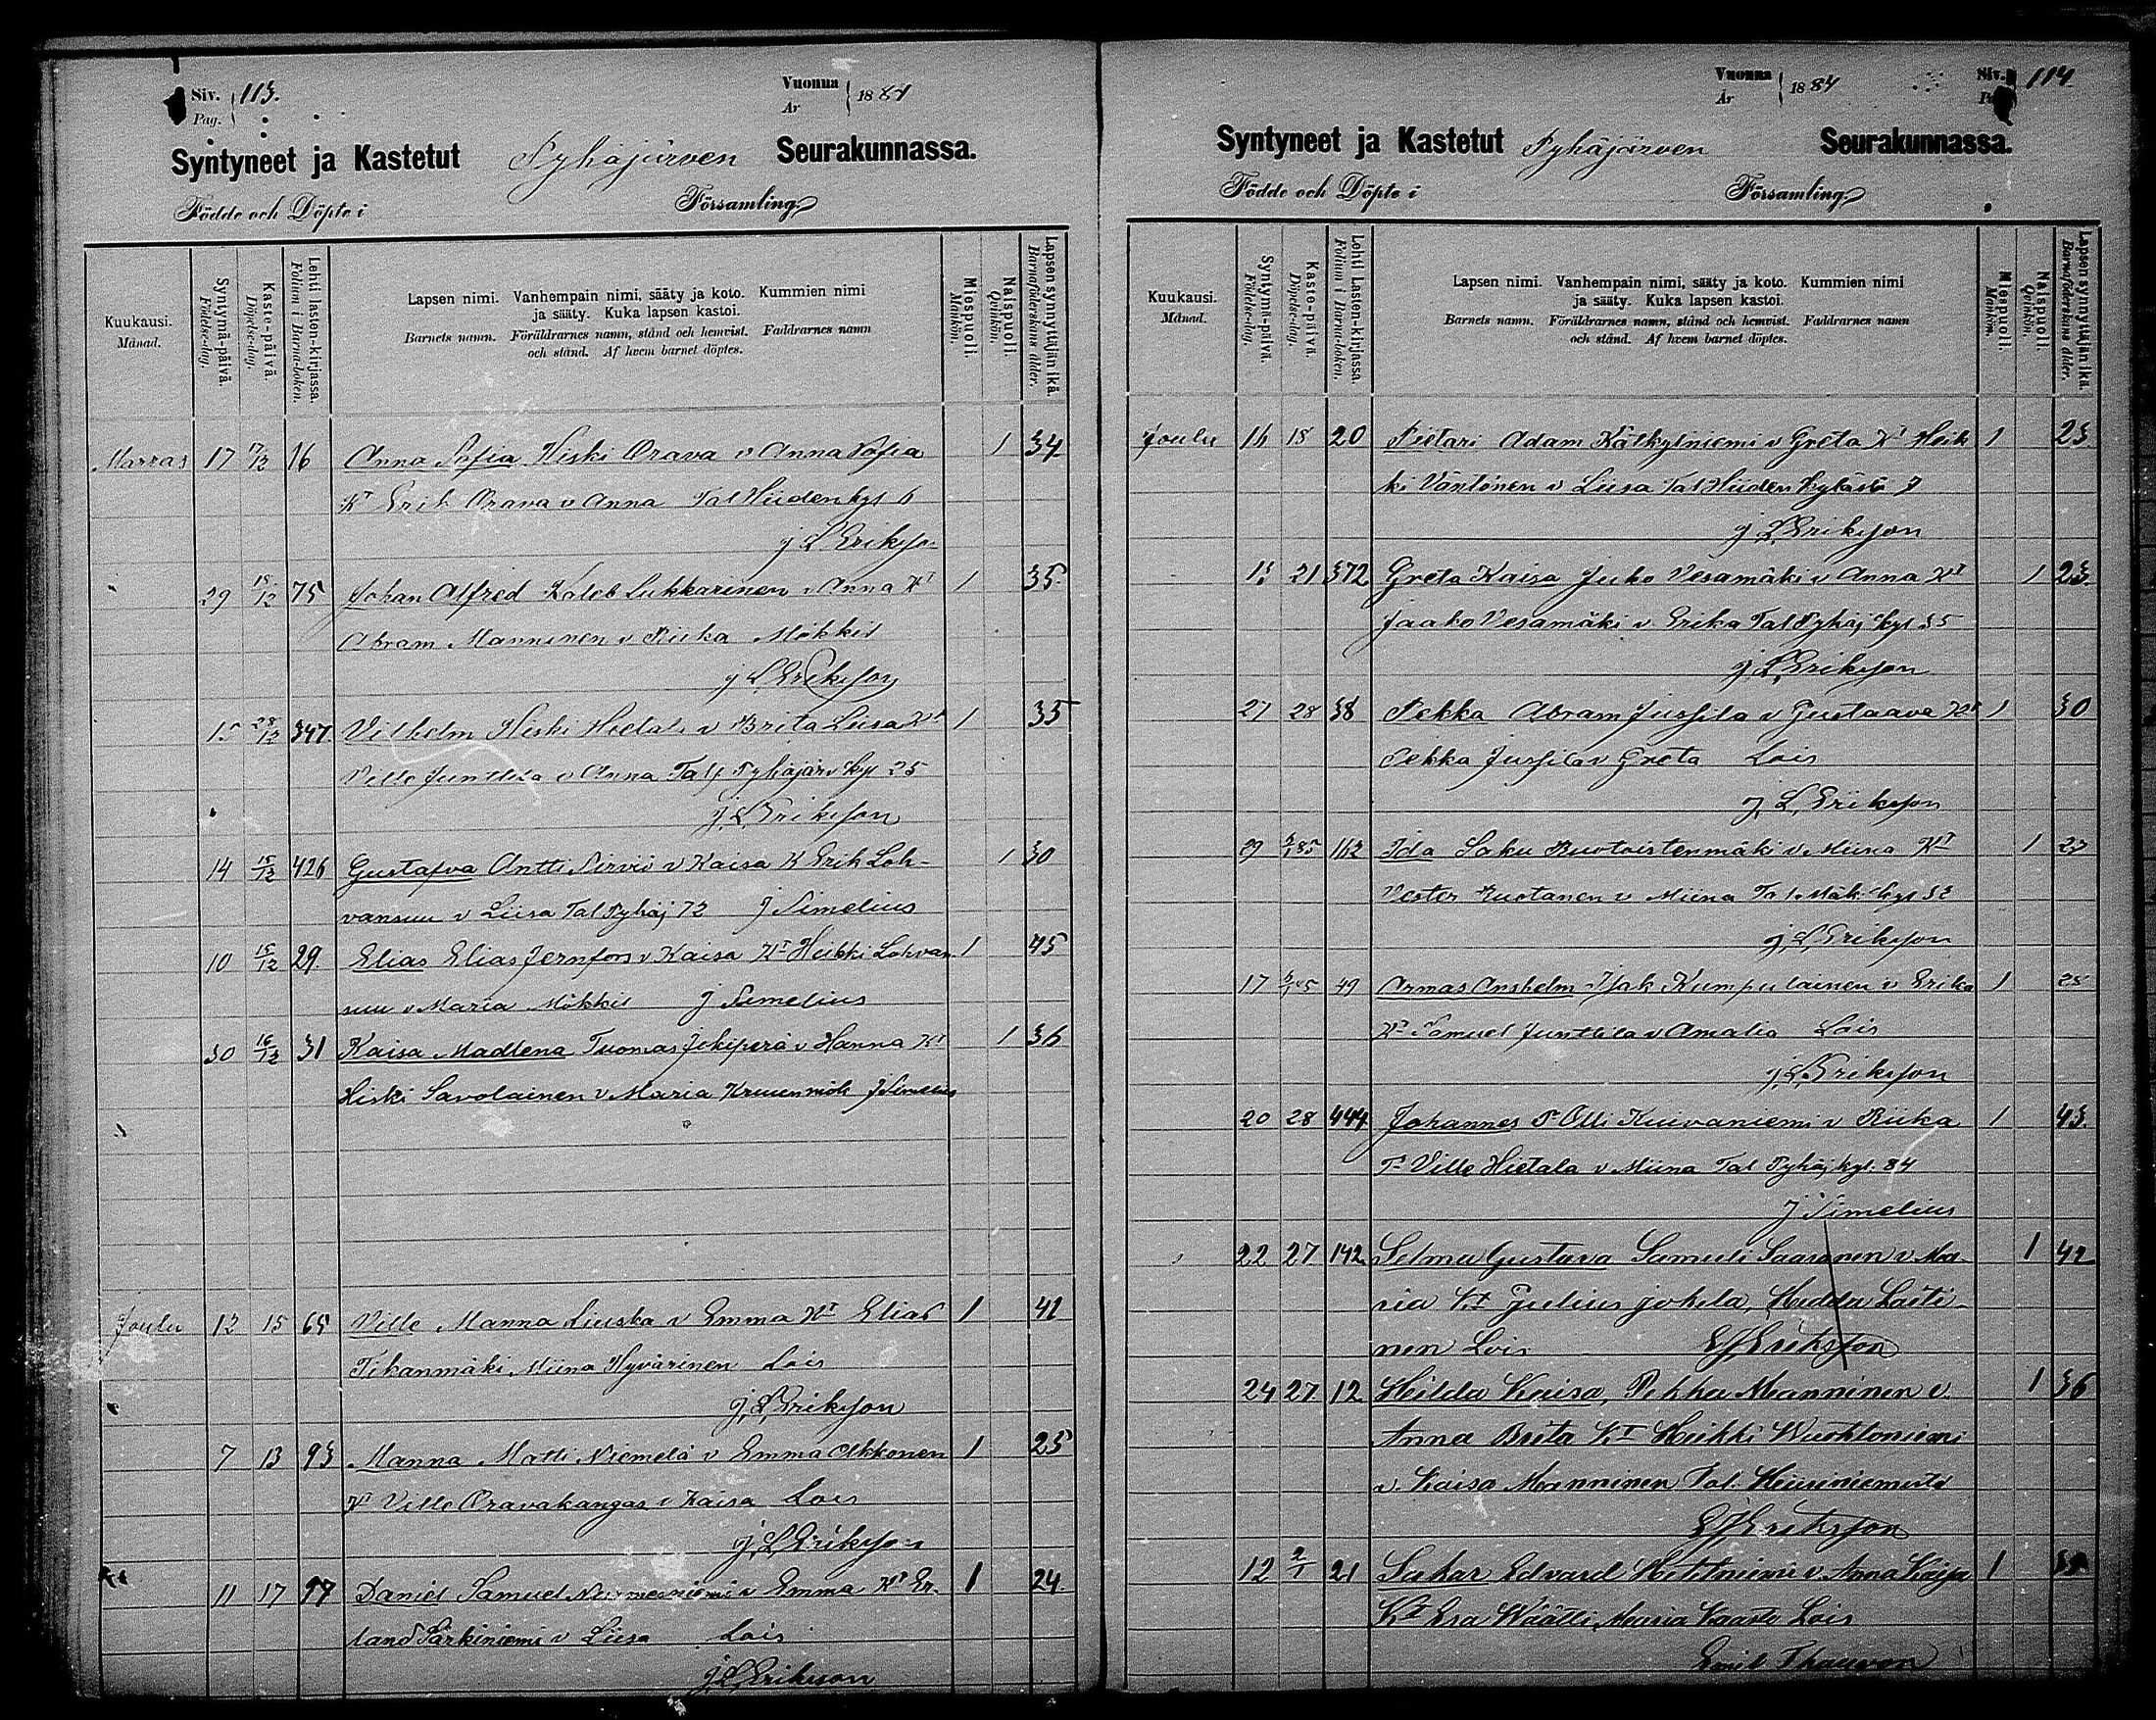 Siv. Pag. 113.
Vuonna År 1884
Syntyneet ja Kastetut Pyhäjärven Seurakunnassa.
Födde och Döpte i Församling.
Kuukausi. Månad.
Syntymä-päivä. Födelse-dag.
Kaste-päivä. Döpelse-dag.
Lehti lasten-kirjassa. Folium i Barna-boken.
Lapsen nimi. Vanhempain nimi, sääty ja koto. Kummien nimi
ja sääty. Kuka lapsen kastoi.
Barnets namn. Föräldrarnes namn, stånd och hemvist. Faddrarnes namn
och stånd. Af hvem barnet döptes.
Miespuoli. Mankön.
Naispuoli. Qvinkön.
Lapsen synnyttäjän ikä. Barnaföderskans ålder.
Marras 17 17/12 16 Anna Sofia Hiski Orava v Anna Sofia 1 34
Kt Erik Orava v Anna Tal Hiidenkyl 6
j L Erikson
29 15/12 75 Johan Alfred Kaleb Lukkarinen v Anna Kt 1 35
Abram Manninen v Riika Mökkil
j L Erikson
15 28/12 347 Vilhelm Hiski Hietala v Brita Liisa Kt 1 35
Ville Junttila v Anna Tal Pyhäjärv kyl 25
j L Erikson
14 15/12 426 Gustafva Antti Pirviö v Kaisa K Erik Loh- 1 30
vansuu v Liisa Tal Pyhäj 72 J Simelius
10 15/12 29. Elias Elias Jernfors v Kaisa Kt Heikki Lohvan 1 45
suu v Maria Mökkil J Simelius
30 16/12 31 Kaisa Madlena Tuomas Jokiperä v Hanna Kt 1 36
Hiski Savolainen v Maria Kruunmök J Simelius
Joulu 12 15 65 Ville Manna Liuska v Emma Kt Elias 1 41
Tikanmäki, Miina Hyvärinen Lois
j L Erikson
7 13 93 Manna Matti Niemelä v Emma Akkonen 1 25
Kt Ville Oravakangas v Kaisa Lois
j L Erikson
11 17 97 Daniel Samuel Nurmesniemi v Emma Kt Er- 1 24.
land Särkiniemi v Liisa Lois
j L Erikson
Vuonna År 1884
Siv. 114
Syntyneet ja Kastetut Pyhäjärven Seurakunnassa.
Födde och Döpte i Församling.
Kuukausi. Månad.
Syntymä-päivä. Födelse-dag.
Kaste-päivä. Döpelse-dag.
Lehti Lasten-kirjassa. Folium i Barna-boken.
Lapsen nimi. Vanhempain nimi, sääty ja koto. Kummien nimi
ja sääty. Kuka lapsen kastoi.
Barnets namn. Föräldrarnes namn, stånd och hemvist. Faddrarnes namn
och stånd. Af hvem barnet döptes.
Miespuoli. Mankön.
Naispuoli. Qvinkön.
Lapsen synnyttäjän ikä. Barnaföderskans ålder.
Joulu 16 18 20 Pietari Adam Kätkytniemi v Greta Kt Heik 1 23
ki Väntönen v Liisa Tal Hiiden kylästä 7
j L Erikson
13 21 372 Greta Kaisa Juho Vesamäki v Anna Kt 1 23.
Jaako Vesamäki v Erika Tal Pyhäj kyl 35
j L Erikson
27 28 38 Pekka Abram Jussila v Gustaava Kt 1 30
Pekka Jussila v Greta Lois
J L Erikson
29 6/1 85 162 Ida Saku Ruotoistenmäki v Miina Kt 1 27
Vester Ruotanen v Miina Tal Mäki kyl 32
j L Erikson
17 49 Armas Anshelm Isak Kumpulainen v Erika 1 25
Kt Samuel Junttila v Amalia Lois
j L Erikson
20 28 444 Johannes P Olli Kuivaniemi v Riika 1 43.
T Ville Hietala v Miina Tal Pyhäj kyl. 84
J Simelius
22 27 142 Selma Gustava Samuli Saaranen v Ma- 1 42
ria Kt Julius Jokela, Hedda Laiti-
nen Lois EJ Eriksson
24 27 12 Hilda Kaisa, Pekka Manninen v 1 36
Anna Brita Kt Heikki Wuohtoniemi
v. Kaisa Manninen Tal. Hiiniemestä
EJ Eriksson
12 2/1 21 Sakar Edvard Hiltuniemi v. Anna Kaisa 1 35
Kt Esa Wäätti, Maria Kaasto Lois
Emil Thauvon